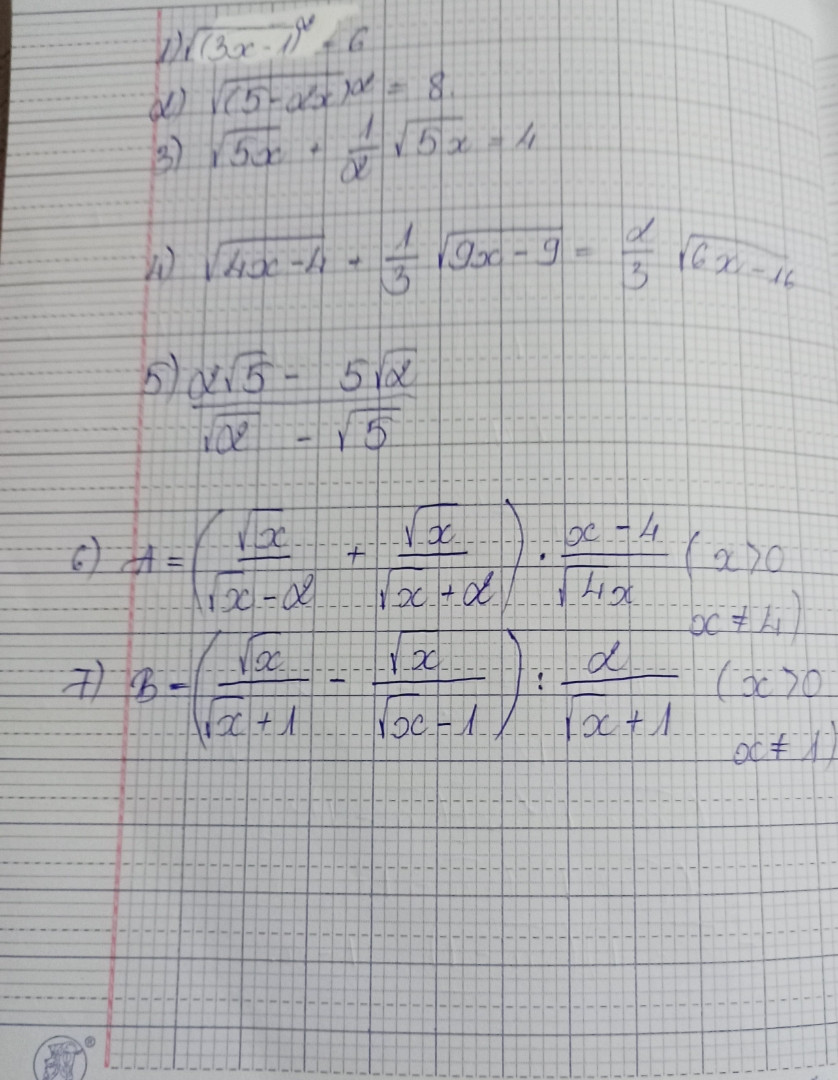 1) √(3x-1)² = 6
2) √(5-2x)² = 8
3) √5x + 1/2 √5x = 4
4) √4x-4 + 1/3 √9x-9 = 2/3 √6x-16
5) 2√5 - 5√2 / √2 - √5
6) A = (√x / √x-2 + √x / √x+2) · x-4 / √4x (x>0
x≠4)
7) B = (√x / √x+1 - √x / √x-1) : 2 / √x+1 (x>0
x≠1)